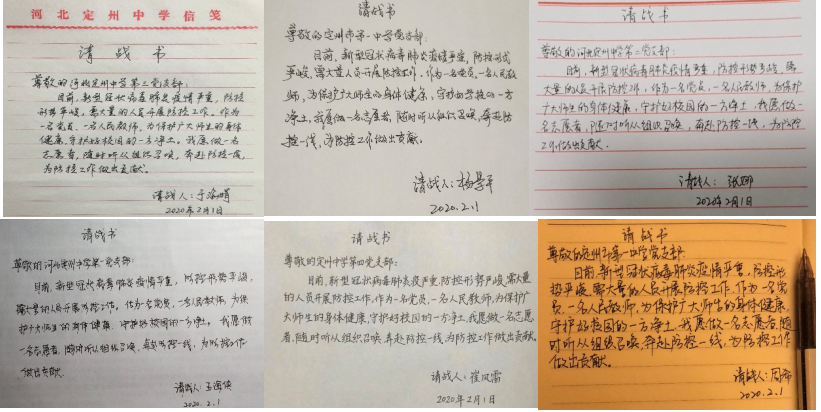 河北定州中学信笺
请战书
尊敬的河北定州中学第三党支部:
目前,新型冠状病毒肺炎疫情严重,防控
形势严峻,需大量的人员开展防控工作。作为
一名党员,一名人民教师,为保护广大师生的身体
健康,守护好校园的一方净土。我愿做一名
志愿者,随时听从组织召唤,奔赴防控一线,
为防控工作做出贡献。
请战人:
2020年2月1日
请战书
尊敬的定州市第一中学党支部:
目前,新型冠状病毒肺炎疫情严重,防控形势
严峻,需大量人员开展防控工作。作为一名党员,一名人民教
师,为保护广大师生的身体健康,守护好学校的一方
净土,我愿做一名志愿者,随时听从组织召唤,奔赴防
控一线,为防控工作做出贡献。
请战人:杨景平
2020.2.1
请战书
尊敬的河北定州中学第二党支部:
目前,新型冠状病毒肺炎疫情严重,防控形势严峻,需
大量的人员开展防控工作,作为一名党员,一名人民教师,为保护
广大师生的身体健康,守护好校园的一方净土,我愿做一
名志愿者,随时听从组织召唤,奔赴防控一线,为防控
工作做出贡献.
请战人:张娜
2020年2月1日
请战书
尊敬的河北定州中学第一党支部:
目前,新型冠状病毒肺炎疫情严重,防控形势严峻,
需大量的人员开展防控工作。作为一名党员,一名人民教师,为保
护广大师生的身体健康,守护好校园的一方净土。我愿做
一名志愿者,随时听从组织召唤,奔赴防控一线,为防控工作
做出贡献.
请战人:
2020.2.1
请战书
尊敬的定州中学第四党支部:
目前,新型冠状病毒肺炎疫严重,防控形势严峻,需大量
的人员开展防控工作,作为一名党员,一名人民教师,为保护广
大师生的身体健康,守护好校园的一方净土,我愿做一名志愿
者,随时听从组织召唤,奔赴防控一线,为防控工作做出贡献。
请战人:崔凤雷
2020年2月1日
请战书
尊敬的定州市第一中学党支部:
目前,新型冠状病毒肺炎疫情严重,防控形
势严峻,需大量的人员开展防控工作,作为一名党
员,一名人民教师,为保护广大师生的身体健康,
守护好校园的一方净土,我愿做一名志愿者,随
时听从组织召唤,奔赴防控一线,为防控工作
做出贡献.
请战人:
2020.2.1